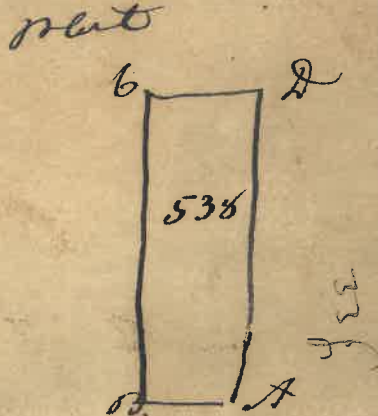 Plat
C D
538
B A